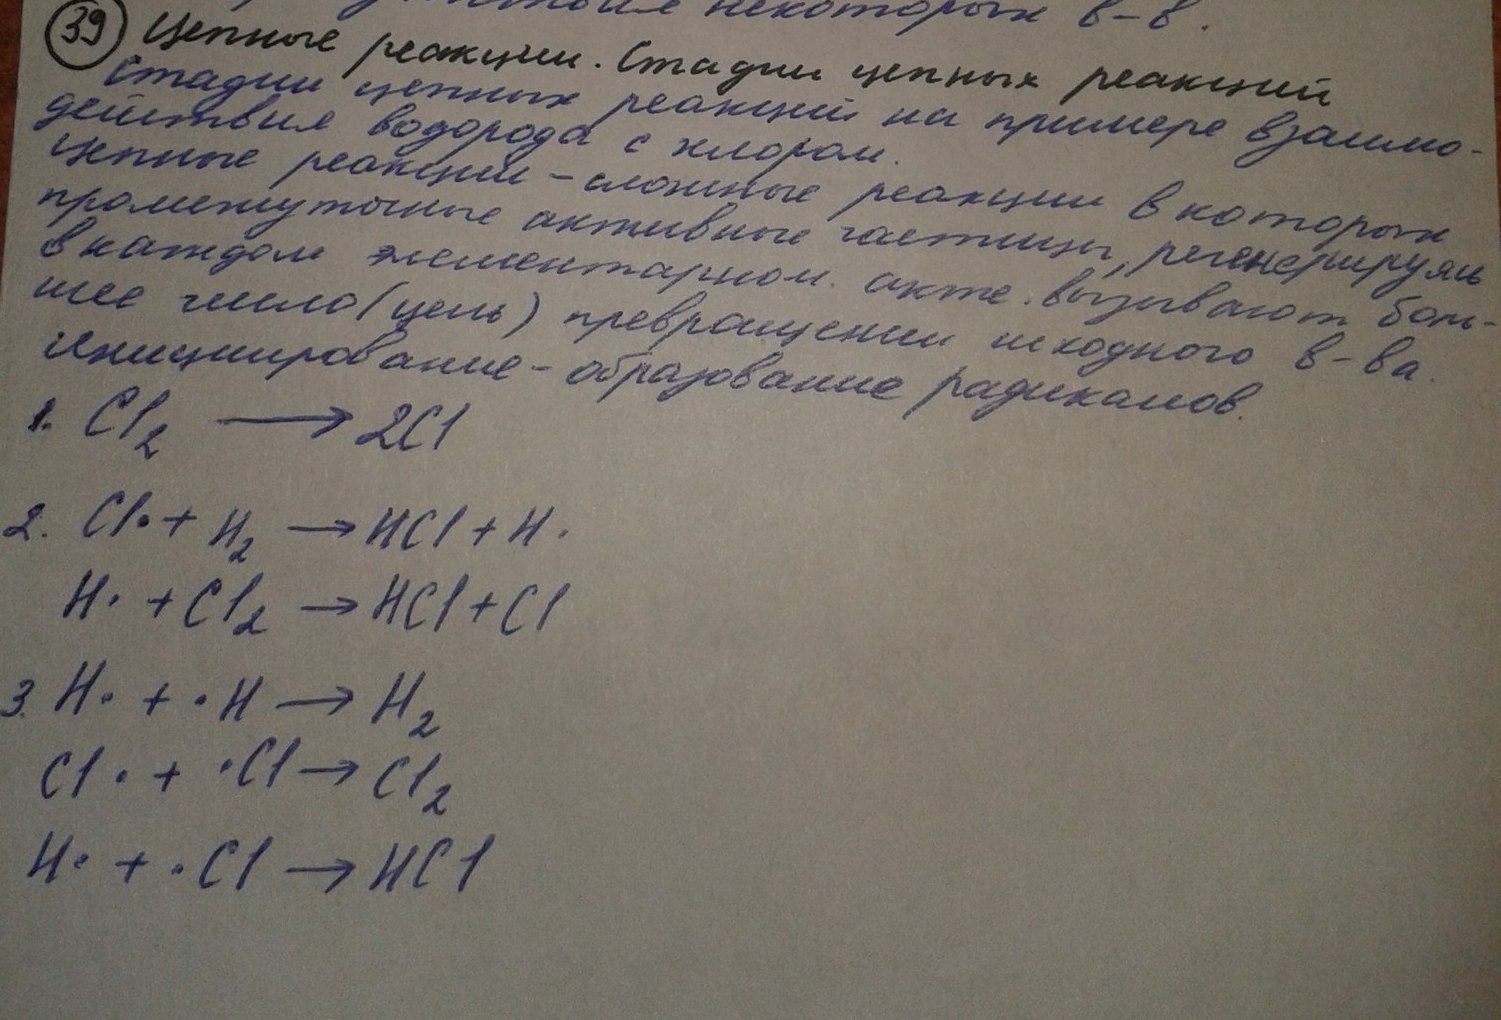 некоторых в-в.
39 Цепные реакции. Стадии цепных реакций
Стадии цепных реакций на примере взаимо-
действия водорода с хлором.
Цепные реакции - сложные реакции в которых
промежуточные активные частицы, регенерируясь
в каждом элементарном. акте. вызывают боль-
шее число (цепь) превращений исходного в-ва.
Инициирование - образование радикалов.
1. Cl₂ → 2Cl
2. Cl· + H₂ → HCl + H·
H· + Cl₂ → HCl + Cl
3. H· + ·H → H₂
Cl· + ·Cl → Cl₂
H· + ·Cl → HCl